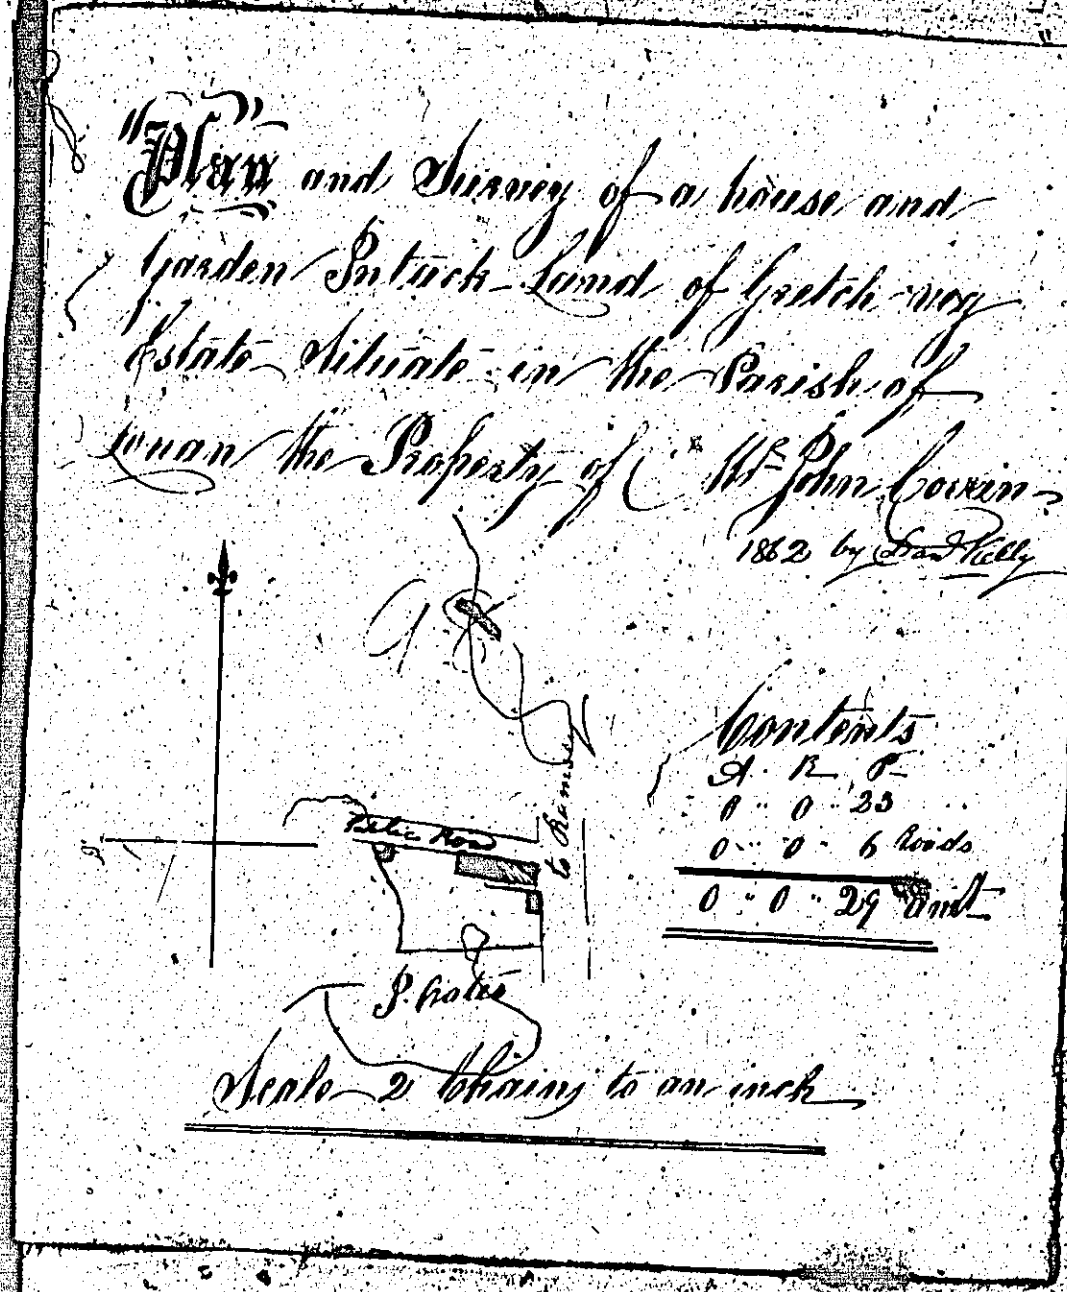 "Plan" and Survey of a house and
Garden Intack Land of Gretch voy
Estate Situate in the Parish of
Lonan the Property of Mr John Cowin
1862 by Kelly
Public Road
to Ramsey
Contents
A. R P
0 .. 0 .. 23
0 .. 0 .. 6 Roads
0 .. 0 .. 29 amt
Scale 2 Chains to an inch